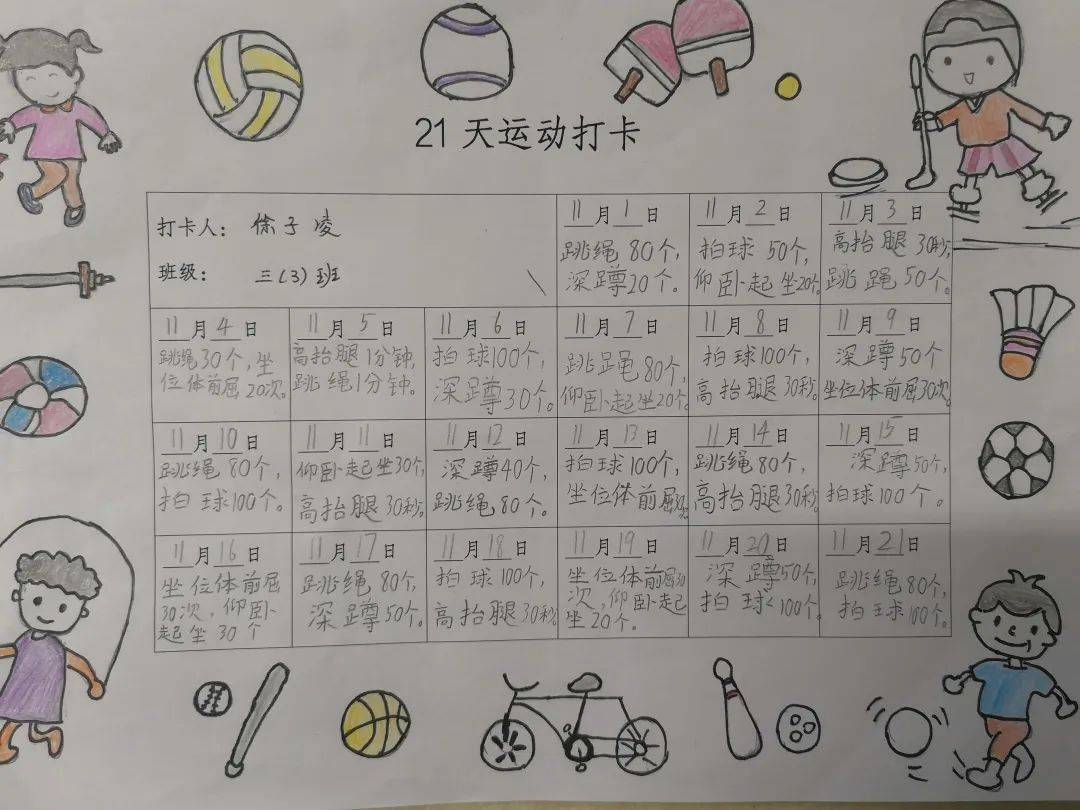 21 天运动打卡
打卡人: 徐子凌
班级: 三(3)班
11月1日
跳绳80个,
深蹲20个。
11月2日
拍球50个,
仰卧起坐20个。
11月3日
高抬腿30秒,
跳绳50个。
11月4日
跳绳30个,坐
位体前屈20次。
11月5日
高抬腿1分钟,
跳绳1分钟。
11月6日
拍球100个,
深蹲30个。
11月7日
跳绳80个,
仰卧起坐20个。
11月8日
拍球100个,
高抬腿30秒。
11月9日
深蹲50个
坐位体前屈30次。
11月10日
跳绳80个,
拍球100个。
11月11日
仰卧起坐30个,
高抬腿30秒。
11月12日
深蹲40个,
跳绳80个。
11月13日
拍球100个,
坐位体前屈
11月14日
跳绳80个,
高抬腿30秒。
11月15日
深蹲50个,
拍球100个。
11月16日
坐位体前屈
30次,仰卧
起坐30个
11月17日
跳绳80个,
深蹲50个。
11月18日
拍球100个,
高抬腿30秒。
11月19日
坐位体前屈30
次,仰卧起
坐20个。
11月20日
深蹲50个,
拍球100个。
11月21日
跳绳80个,
拍球100个。